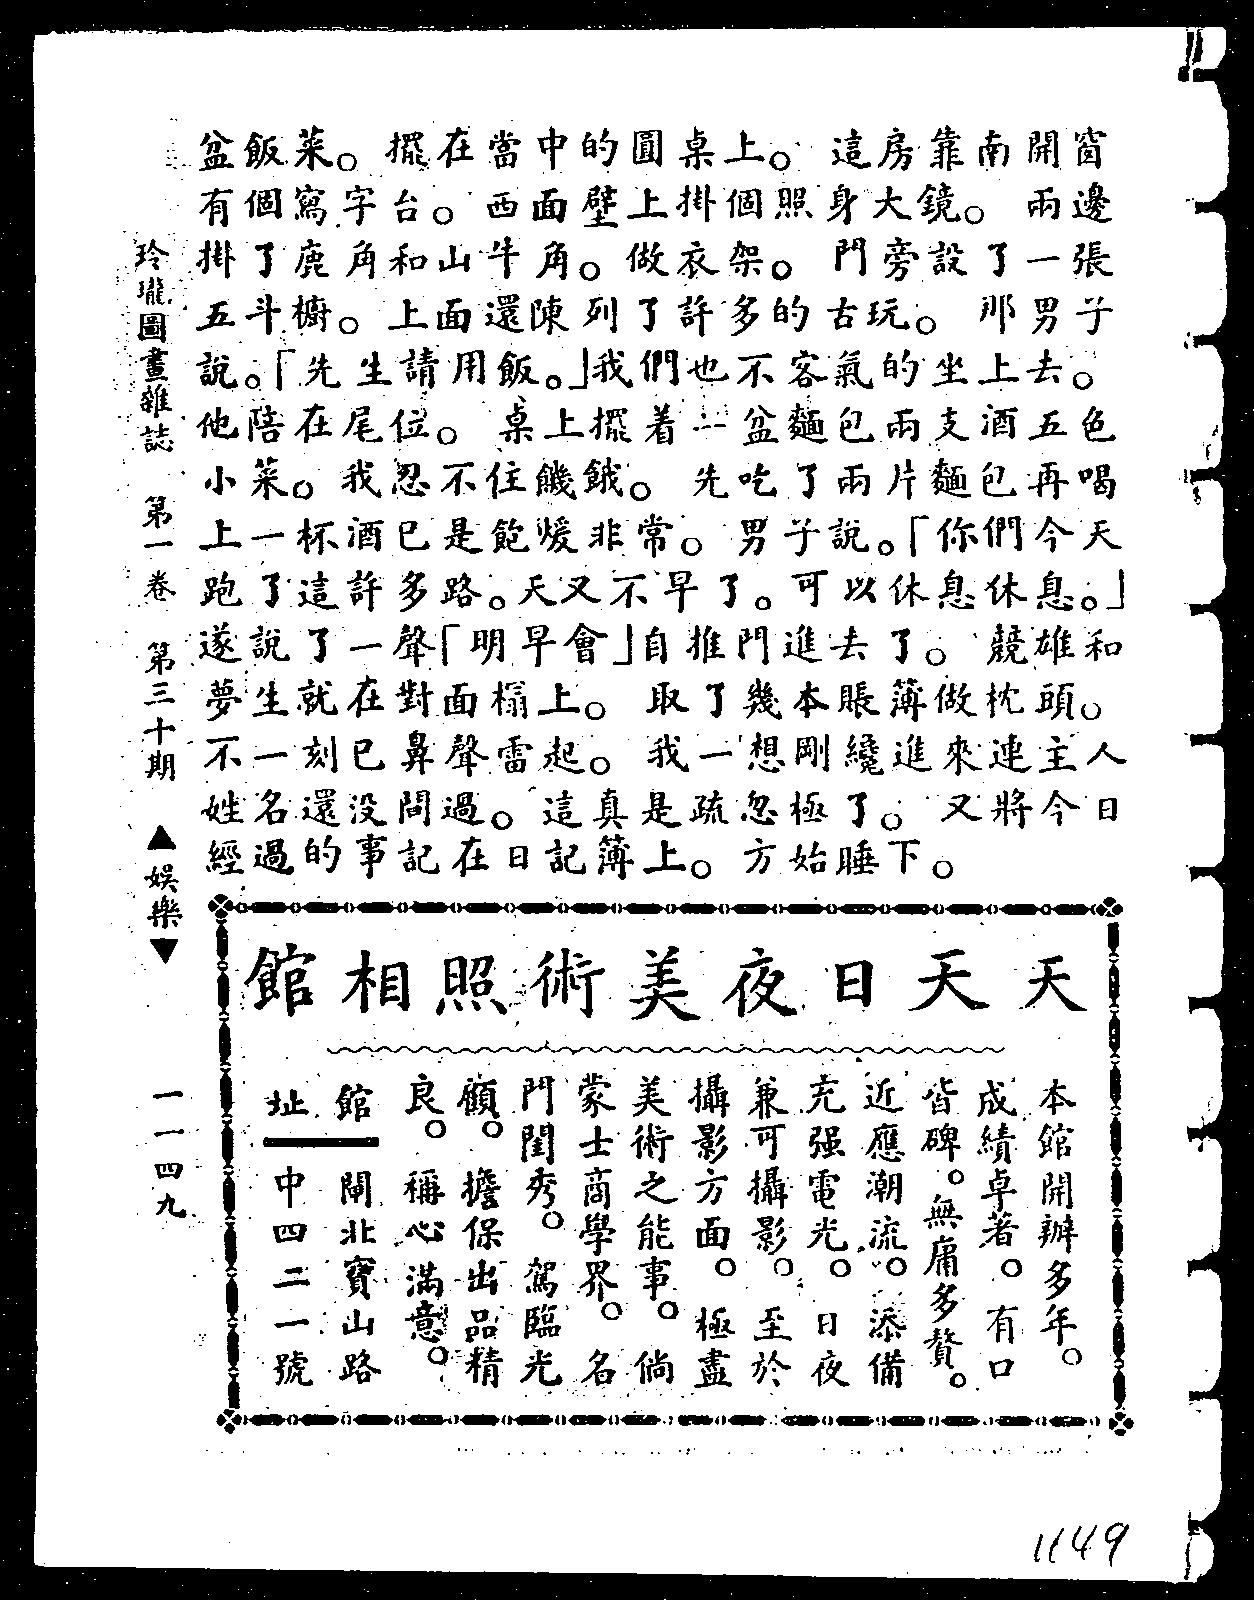 盆飯菜。擺在當中的圓桌上。這房靠南開窗
有個寫字台。西面壁上掛個照身大鏡。兩邊
掛了鹿角和山牛角。做衣架。門旁設了一張
五斗櫥。上面還陳列了許多的古玩。那男子
說。「先生請用飯。」我們也不客氣的坐上去。
他陪在尾位。桌上擺着一盆麵包兩支酒五色
小菜。我忍不住饑餓。先吃了兩片麵包再喝
上一杯酒已是飽煖非常。男子說。「你們今天
跑了這許多路。天又不早了。可以休息休息。」
遂說了一聲「明早會」自推門進去了。競雄和
夢生就在對面榻上。取了幾本賬簿做枕頭。
不一刻已鼻聲雷起。我一想剛纔進來連主人
姓名還没問過。這真是疏忽極了。又將今日
經過的事記在日記簿上。方始睡下。
玲瓏圖畫雜誌 第一卷 第三十期 ▲娛樂▼ 一一四九
天天日夜美術照相館
本館開辦多年。
成績卓著。有口
皆碑。無庸多贅。
近應潮流。添備
充强電光。日夜
兼可攝影。至於
攝影方面。極盡
美術之能事。倘
蒙士商學界。名
門閨秀。駕臨光
顧。擔保出品精
良。稱心滿意。
館址
閘北寶山路
中四二一號
1149